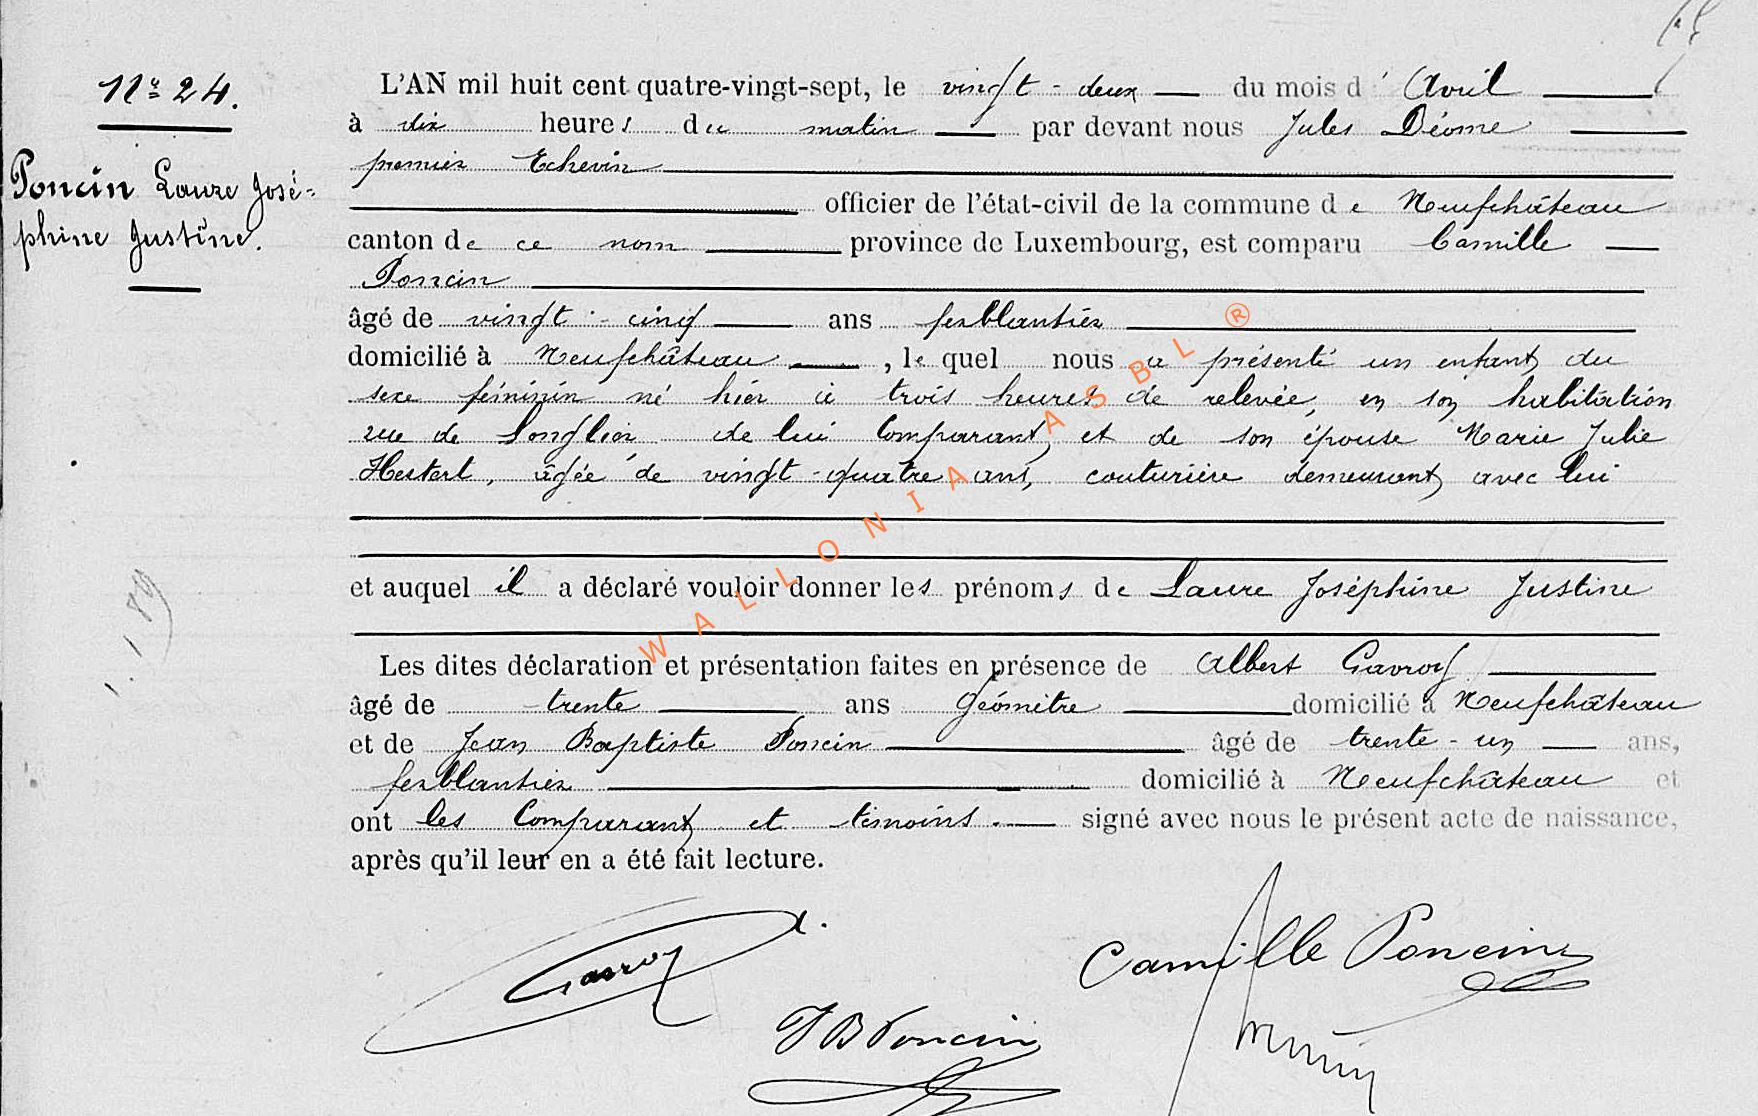 N° 24.
Poncin Laure José-
phine Justine.
L'AN mil huit cent quatre-vingt-sept, le vingt-deux du mois d' Avril
à dix heures du matin par devant nous Jules Déome
premier Echevin
officier de l'état-civil de la commune de Neufchâteau
canton de ce nom province de Luxembourg, est comparu Camille
Poncin
âgé de vingt-cinq ans ferblantier
domicilié à Neufchâteau, lequel nous a présenté un enfant du
sexe féminin né hier à trois heures de relevée, en son habitation
rue de Longlier de lui Comparant, et de son épouse Marie Julie
Hestert, âgée de vingt-quatre ans, couturière demeurant avec lui
et auquel il a déclaré vouloir donner les prénoms de Laure Joséphine Justine
Les dites déclaration et présentation faites en présence de Albert Gavroy
âgé de trente ans Géomètre domicilié à Neufchâteau
et de Jean Baptiste Poncin âgé de trente-un ans,
ferblantier domicilié à Neufchâteau et
ont les Comparant et témoins. signé avec nous le présent acte de naissance,
après qu'il leur en a été fait lecture.
Gavroy A.
Camille Poncin
JB Poncin
WALLONIA ASBL ®